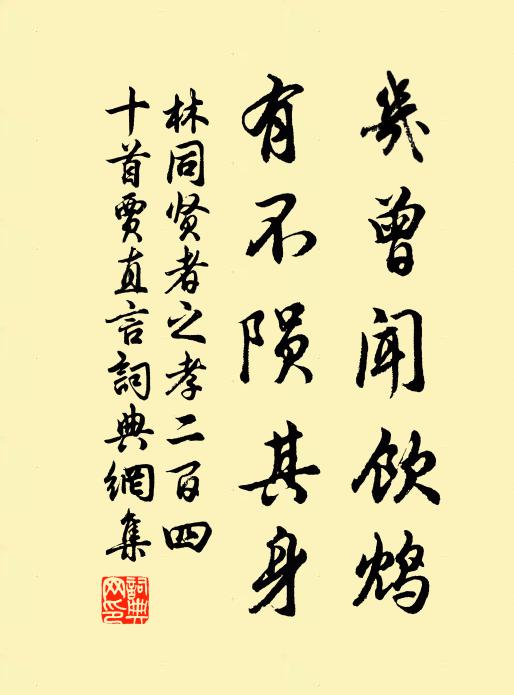 幾曾闻饮鸩
有不陨其身
林同贤者之孝二百四
十首贾直言詞典網集
詞典
网印